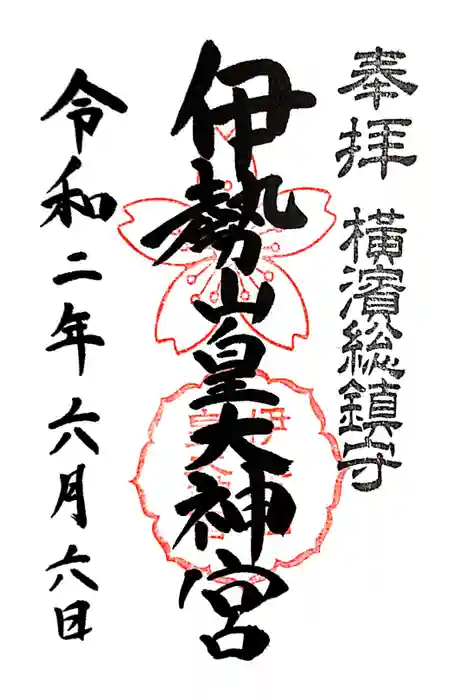 奉拝 橫濱総鎮守
伊勢山皇大神宮
令和二年六月六日